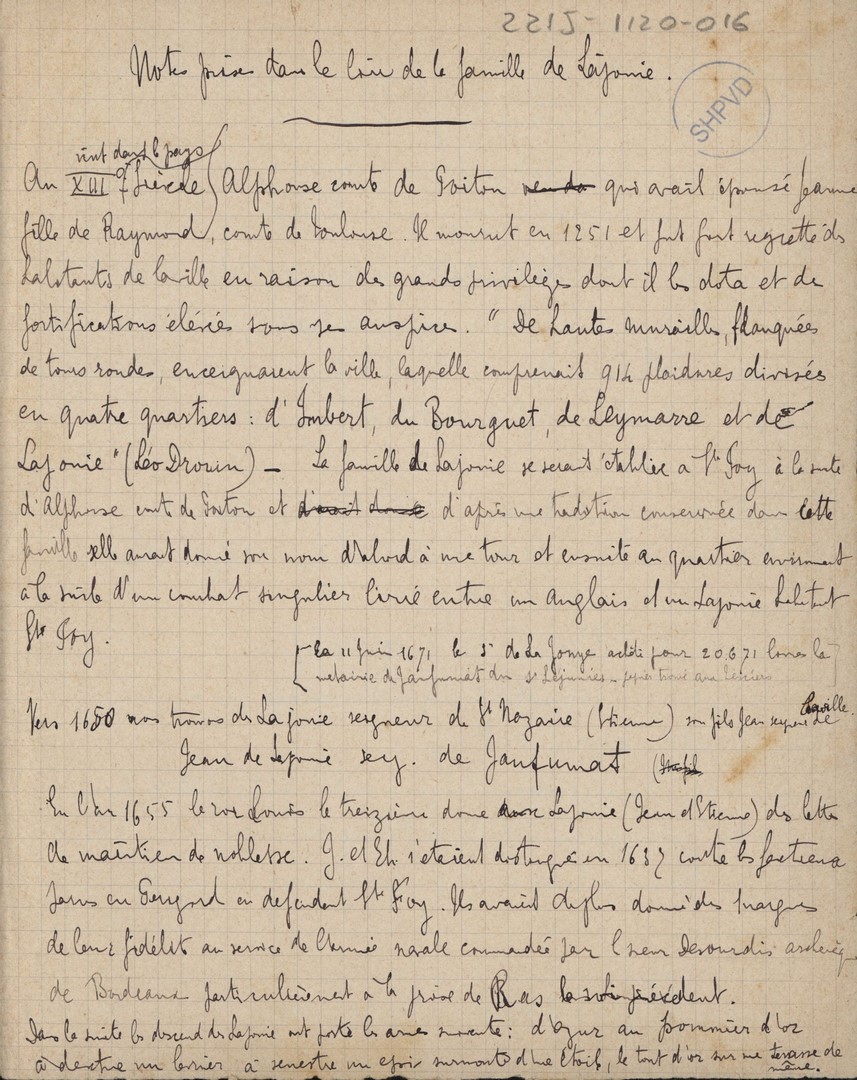 221J-1120-016
Notes prises dans le livre de la famille de Lajonie.
SHPVD
vint dans le pays
Au XIII e Siècle Alphonse comte de Poiton qui avait épousé Jeanne
fille de Raymond, comte de Toulouse. Il mourut en 1251 et fut fort regretté des
habitants de la ville en raison des grands privilèges dont il les dota et des
fortifications élévées sous ses auspices. "De hautes murailles, flanquées
de tours rondes, enceignaient la ville, laquelle comprenait 914 plaidures divisées
en quatre quartiers : d'Imbert, du Bourguet, de Leymarre et de
Lajonie" (Léo Drouin) — La famille de Lajonie se serait établie a Ste Foy à la suite
d'Alphonse comte de Poiton et d'après une tradition conservée dans cette
famille elle aurait donné son nom d'abord à une tour et ensuite au quartier environnant
à la suite d'un combat singulier livré entre un Anglais et un Lajonie habitant
Ste Foy.
[Le 11 Juin 1671 le Sr de La Jonye achète pour 20.671 livres la
métairie de Janfumat du Sr Léjunies - papier trouvé aux]
Vers 1650 nous trouvons des Lajonie seigneur de St Nazaire (Etienne) son fils Jean seigneur de Laville.
Jean de Lajonie seig. de Janfumat
En l'an 1655 le roi Louis le treizième donne Lajonie (Jean et Etienne) des lettres
de maintien de noblesse. J. et Et. s'étaient distingués en 1637 contre les factieux
en Perigord en defendant Ste Foy. Ils avaient de plus donné des marques
de leur fidélité au service de l'armée navale commandée par l'sieur Desourdis archevêque
de Bordeaux particulièrement à la prise de
Dans la suite les descend. des Lajonie ont porté les armes suivantes : d'azur au pommier d'or
à dextre un levrier à senestre un epi surmonté d'une étoile, le tout d'or sur une terrasse de
même.